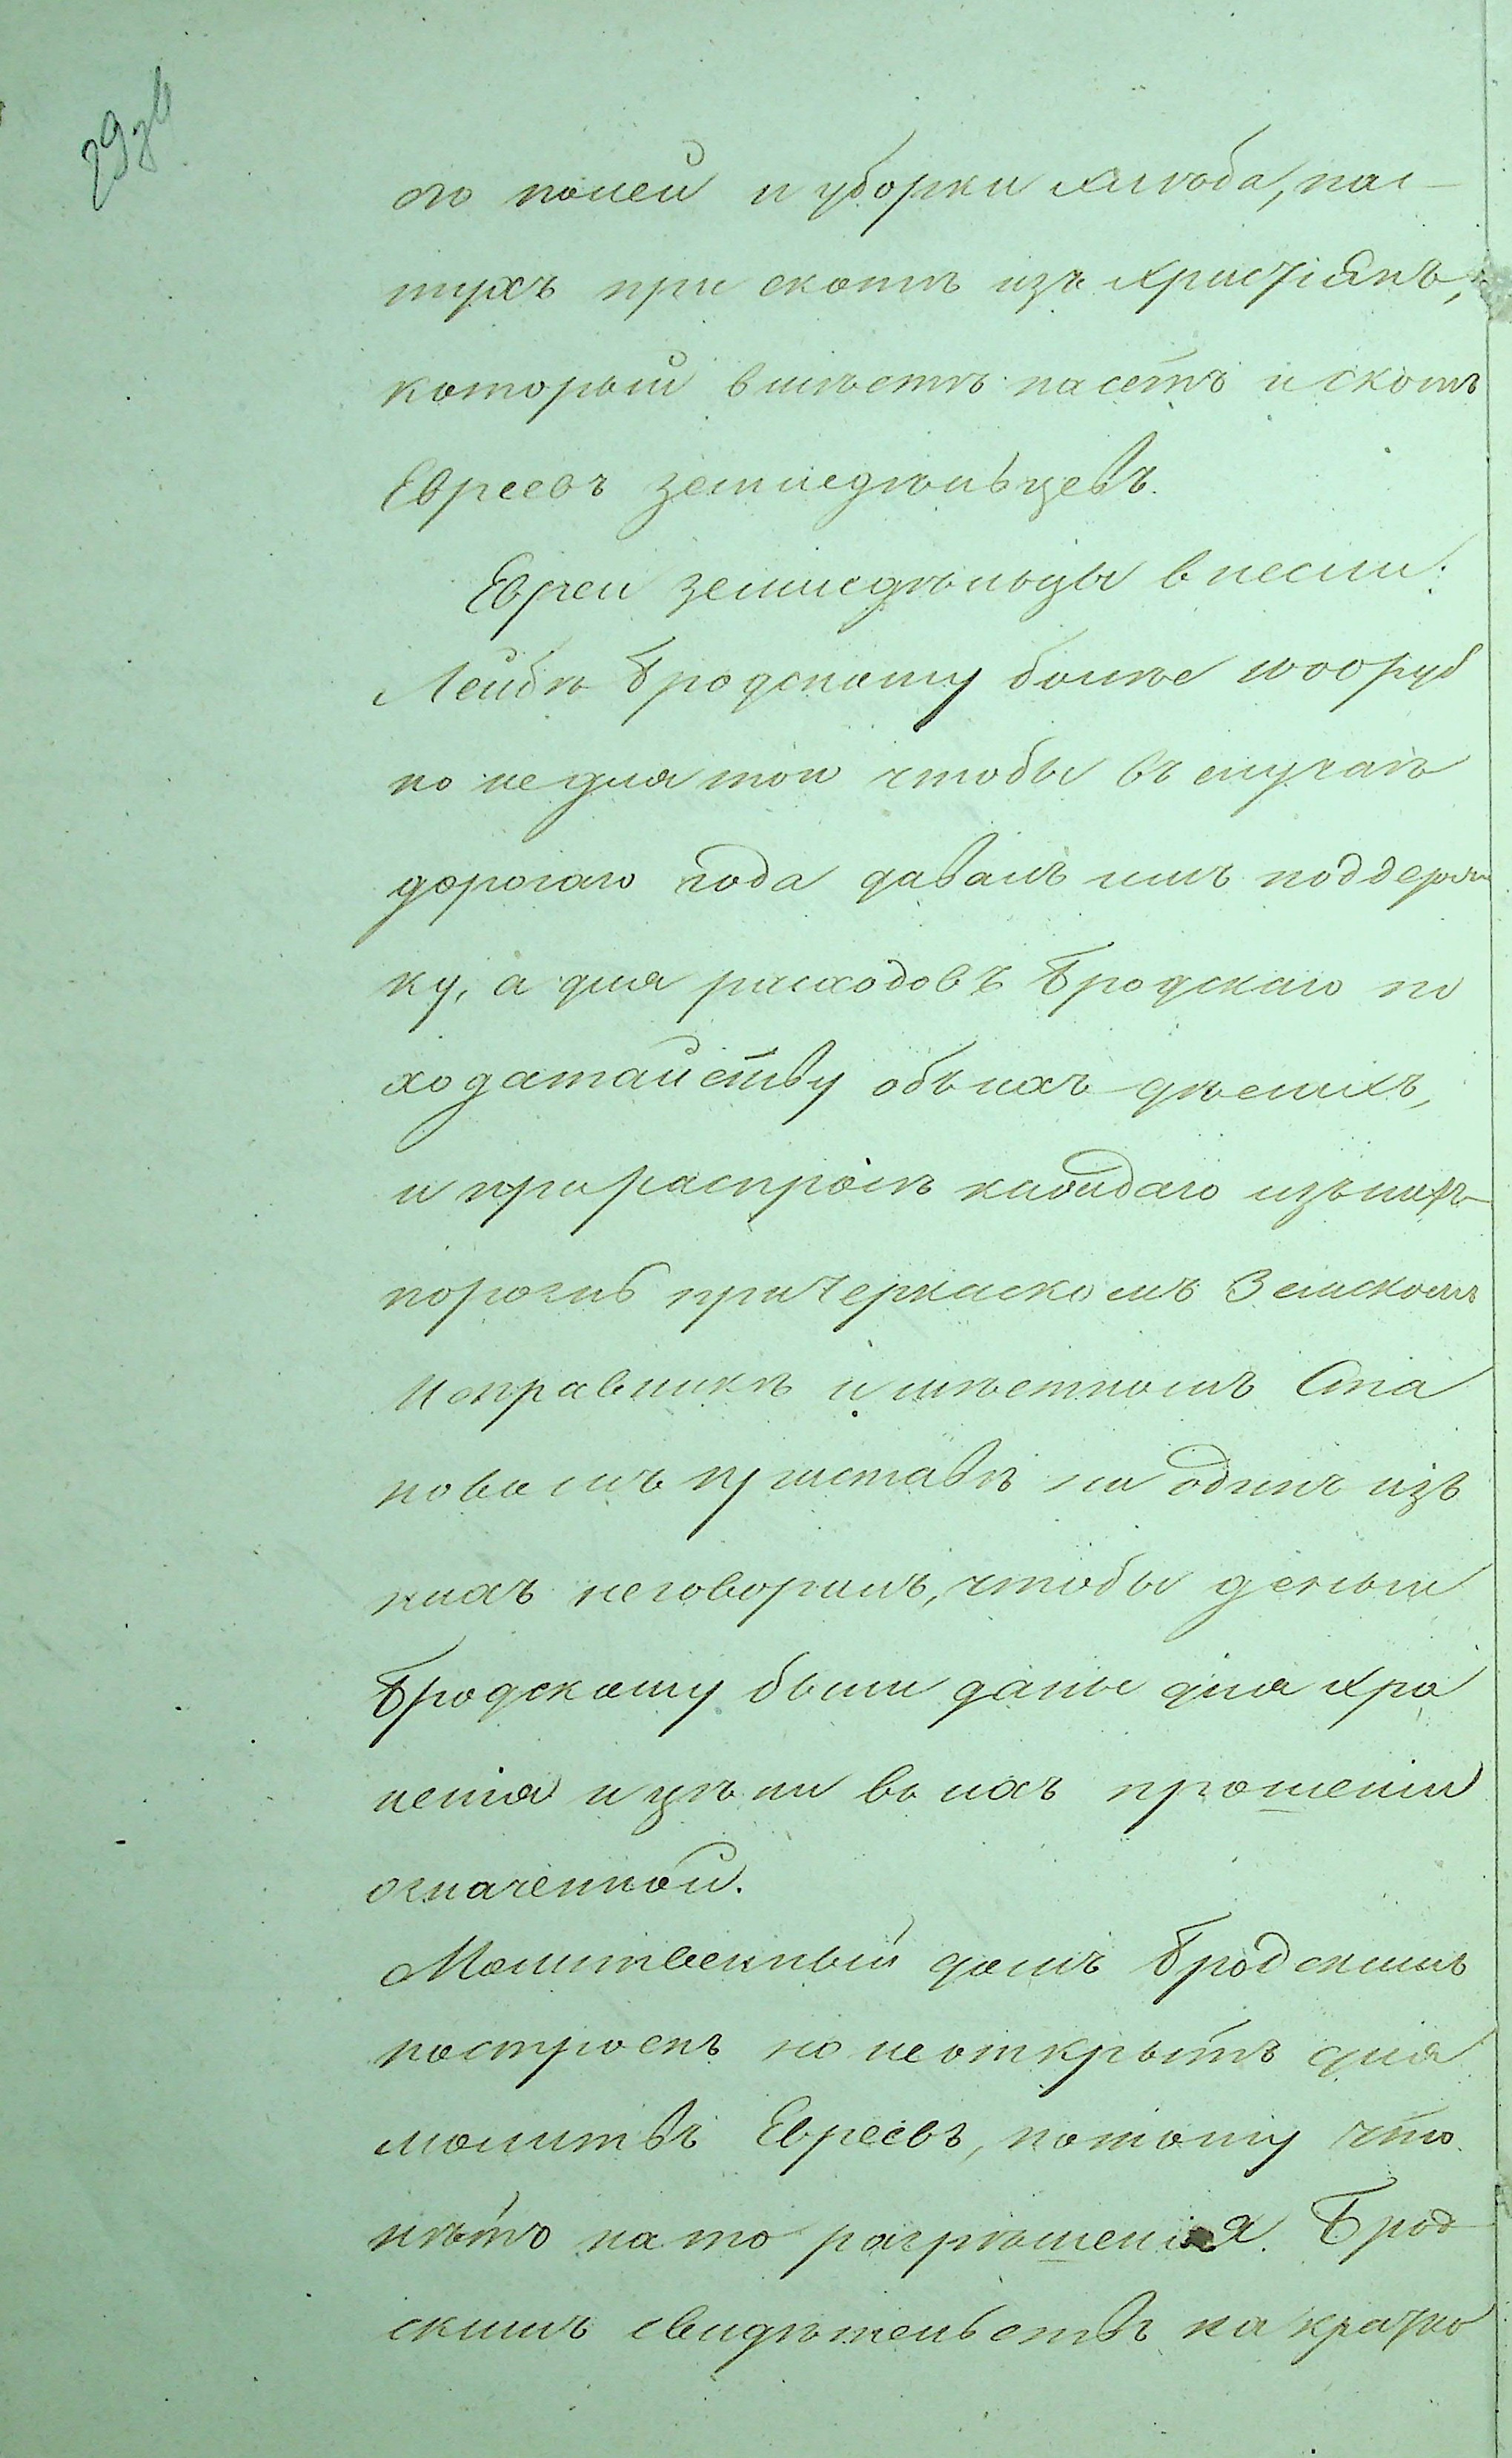 то полей и уборки хлѣба, пас-
тухъ при скотѣ изъ Христіянъ,
который вмѣстѣ пасетъ и скотъ
Евреевъ земледѣльцевъ.
Евреи земледѣльцы внесли
Лейбѣ Бродскому болѣе 1000 руб
но не для того чтобы въ случаѣ
дорогаго года давалъ имъ поддерж
ку, а для расходовъ Бродскаго по
ходатайству объ ихъ дѣлахъ,
и при распросѣ каждаго изъ нихъ
порознь при Черкаскомъ Земскомъ
Исправникѣ и мѣстномъ Ста
новомъ приставѣ ни одинъ изъ
нихъ не говорилъ, чтобы деньги
Бродскому были даны для хра
ненія и цѣли въ ихъ прошеніи
означенной.
Молитвенный домъ Бродскимъ
построенъ но не открытъ для
молитвъ Евреевъ, потому что
нѣтъ на то разрѣшенія. Брод
скимъ свидѣтельствъ на кратко